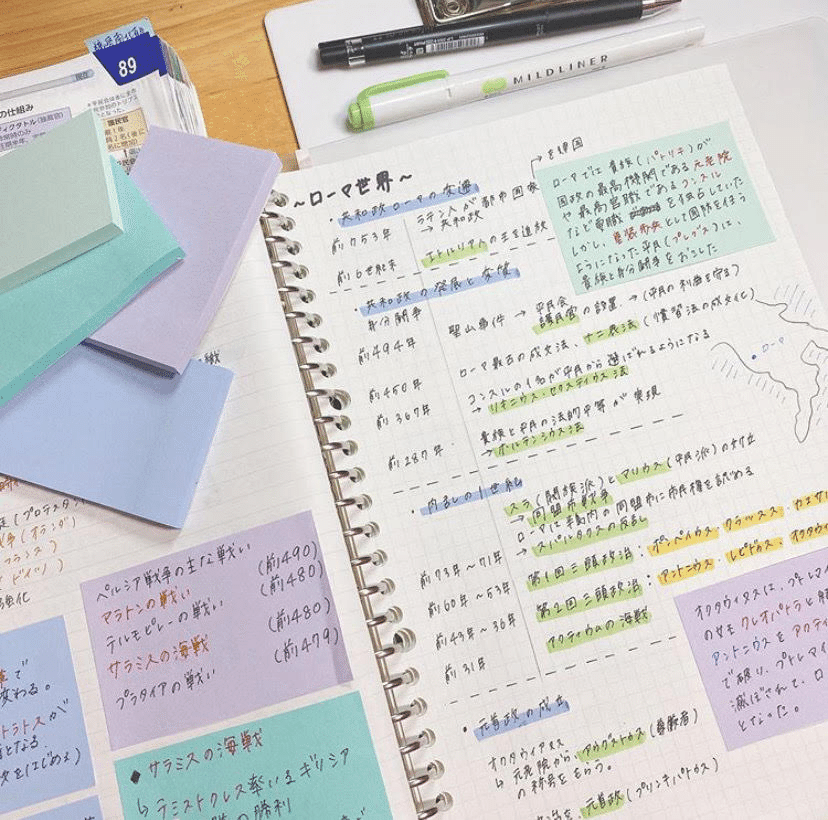 89
現在
の仕組み
ディクタトル(独裁官)
護民官
MILDLINER
〜ローマ世界〜
・共和政ローマの変遷
前753年
ラテン人が都市国家を建国
→共和政
前6世紀末
エトルリア人の王を追放
ローマでは貴族(パトリキ)が
国政の最高機関である元老院
や最高官職であるコンスル
など要職を独占していた
しかし、重装歩兵として国防を担う
ようになった平民(プレブス)は、
貴族と身分闘争をおこした
・共和政の発展と変質
身分闘争
前494年
聖山事件→平民会
護民官の設置→(平民の利益を守る)
前450年
ローマ最古の成文法、十二表法(慣習法の成文化)
前367年
コンスルの1名が平民から選ばれるようになる
→リキニウス・セクスティウス法
前287年
貴族と平民の法的平等が実現
→ホルテンシウス法
ローマ
・内乱の1世紀
スラ(閥族派)とマリウス(平民派)の対立
→同盟市戦争
ローマは半島内の同盟市に市民権を認める
前73年〜71年
→スパルタクスの反乱
前60年〜53年
第1回三頭政治:ポンペイウス クラッスス カエサ
前43年〜36年
第2回三頭政治:アントニウス レピドゥス オクタウ
前31年
アクティウムの海戦
オクタウィウスは、プトレマイ
の女王クレオパトラと
アントニウスをアクティ
で破り、プトレマイ
滅ぼされて、ロ
となった。
・元首政の成立
オクタウィアヌス
↳元老院からアウグストゥス(尊厳者)
の称号をもらう。
元首政(プリンキパトゥス)
(プロテスタン
争(オランダ)
フランス
ドイツ)
強化
ペルシア戦争の主な戦い
マラトンの戦い (前490)
テルモピレーの戦い (前480)
サラミスの海戦 (前480)
プラタイアの戦い (前479)
で
変わる。
トラトスが
となる
をはじめ)
◆サラミスの海戦
↳テミストクレス率いるギリシア
の勝利